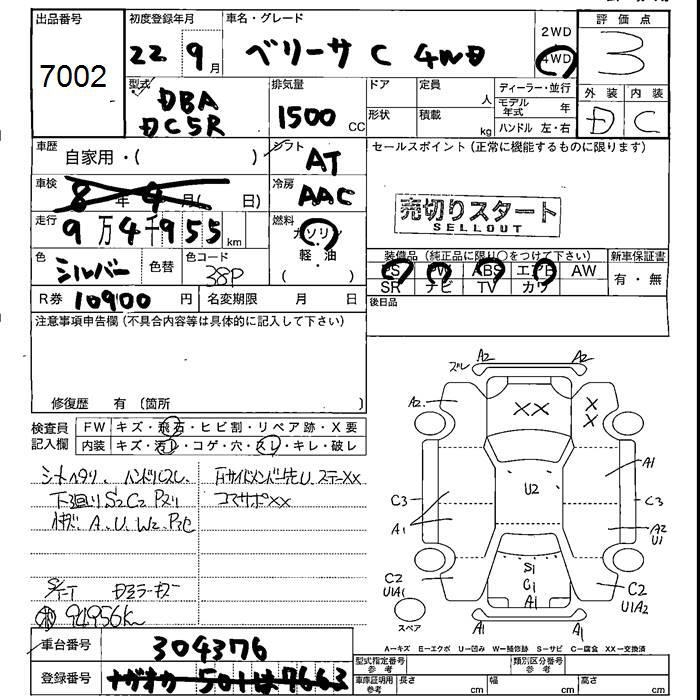 出品番号
7002
初度登録年月
22 9月
車名・グレード
ベリーサ C 4WD
2WD
4WD
評価点
3
型式
DBA
DC5R
排気量
1500 CC
ドア
形状
定員 人
積載 kg
ディーラー・並行
モデル年式 年
ハンドル 左・右
外装 内装
D C
車歴
自家用・( )
シフト
AT
セールスポイント (正常に機能するものに限ります)
車検
8年4月( 日)
冷房
AAC
売切りスタート
SELLOUT
走行
9万4千955km
燃料
ガソリン
軽・油
色
シルバー
色替
色コード
38P
装備品(純正品に限り○をつけて下さい)
PS PW ABS エアB AW
SR ナビ TV カワ
新車保証書
有・無
R券 10900円
名変期限 月 日
後日品
注意事項申告欄(不具合内容等は具体的に記入して下さい)
修復歴 有 〔箇所 〕
検査員
記入欄
FW キズ・飛石・ヒビ割・リペア跡・X要
内装 キズ・汚レ・コゲ・穴・スレ・キレ・破レ
シートヘタリ、ハンドルスレ
下廻りS2C2 Pズリ
A. U. W2.
コアサポXX
94956Km
車台番号
304376
登録番号
501 は 7663
ズレ A2 A2
A2. XX X
X
A1
C3 U2 C3
A1 A2
U1
C2
U1A1
S1
C1
A1
C2
U1A2
A1 A1
スペア
A-キズ E-エクボ U-凹み W-補修跡 S-サビ C-腐食 XX-交換済
型式指定番号
参考
類別区分番号
参考
車庫証明用
参考
長さ cm 幅 cm 高さ cm